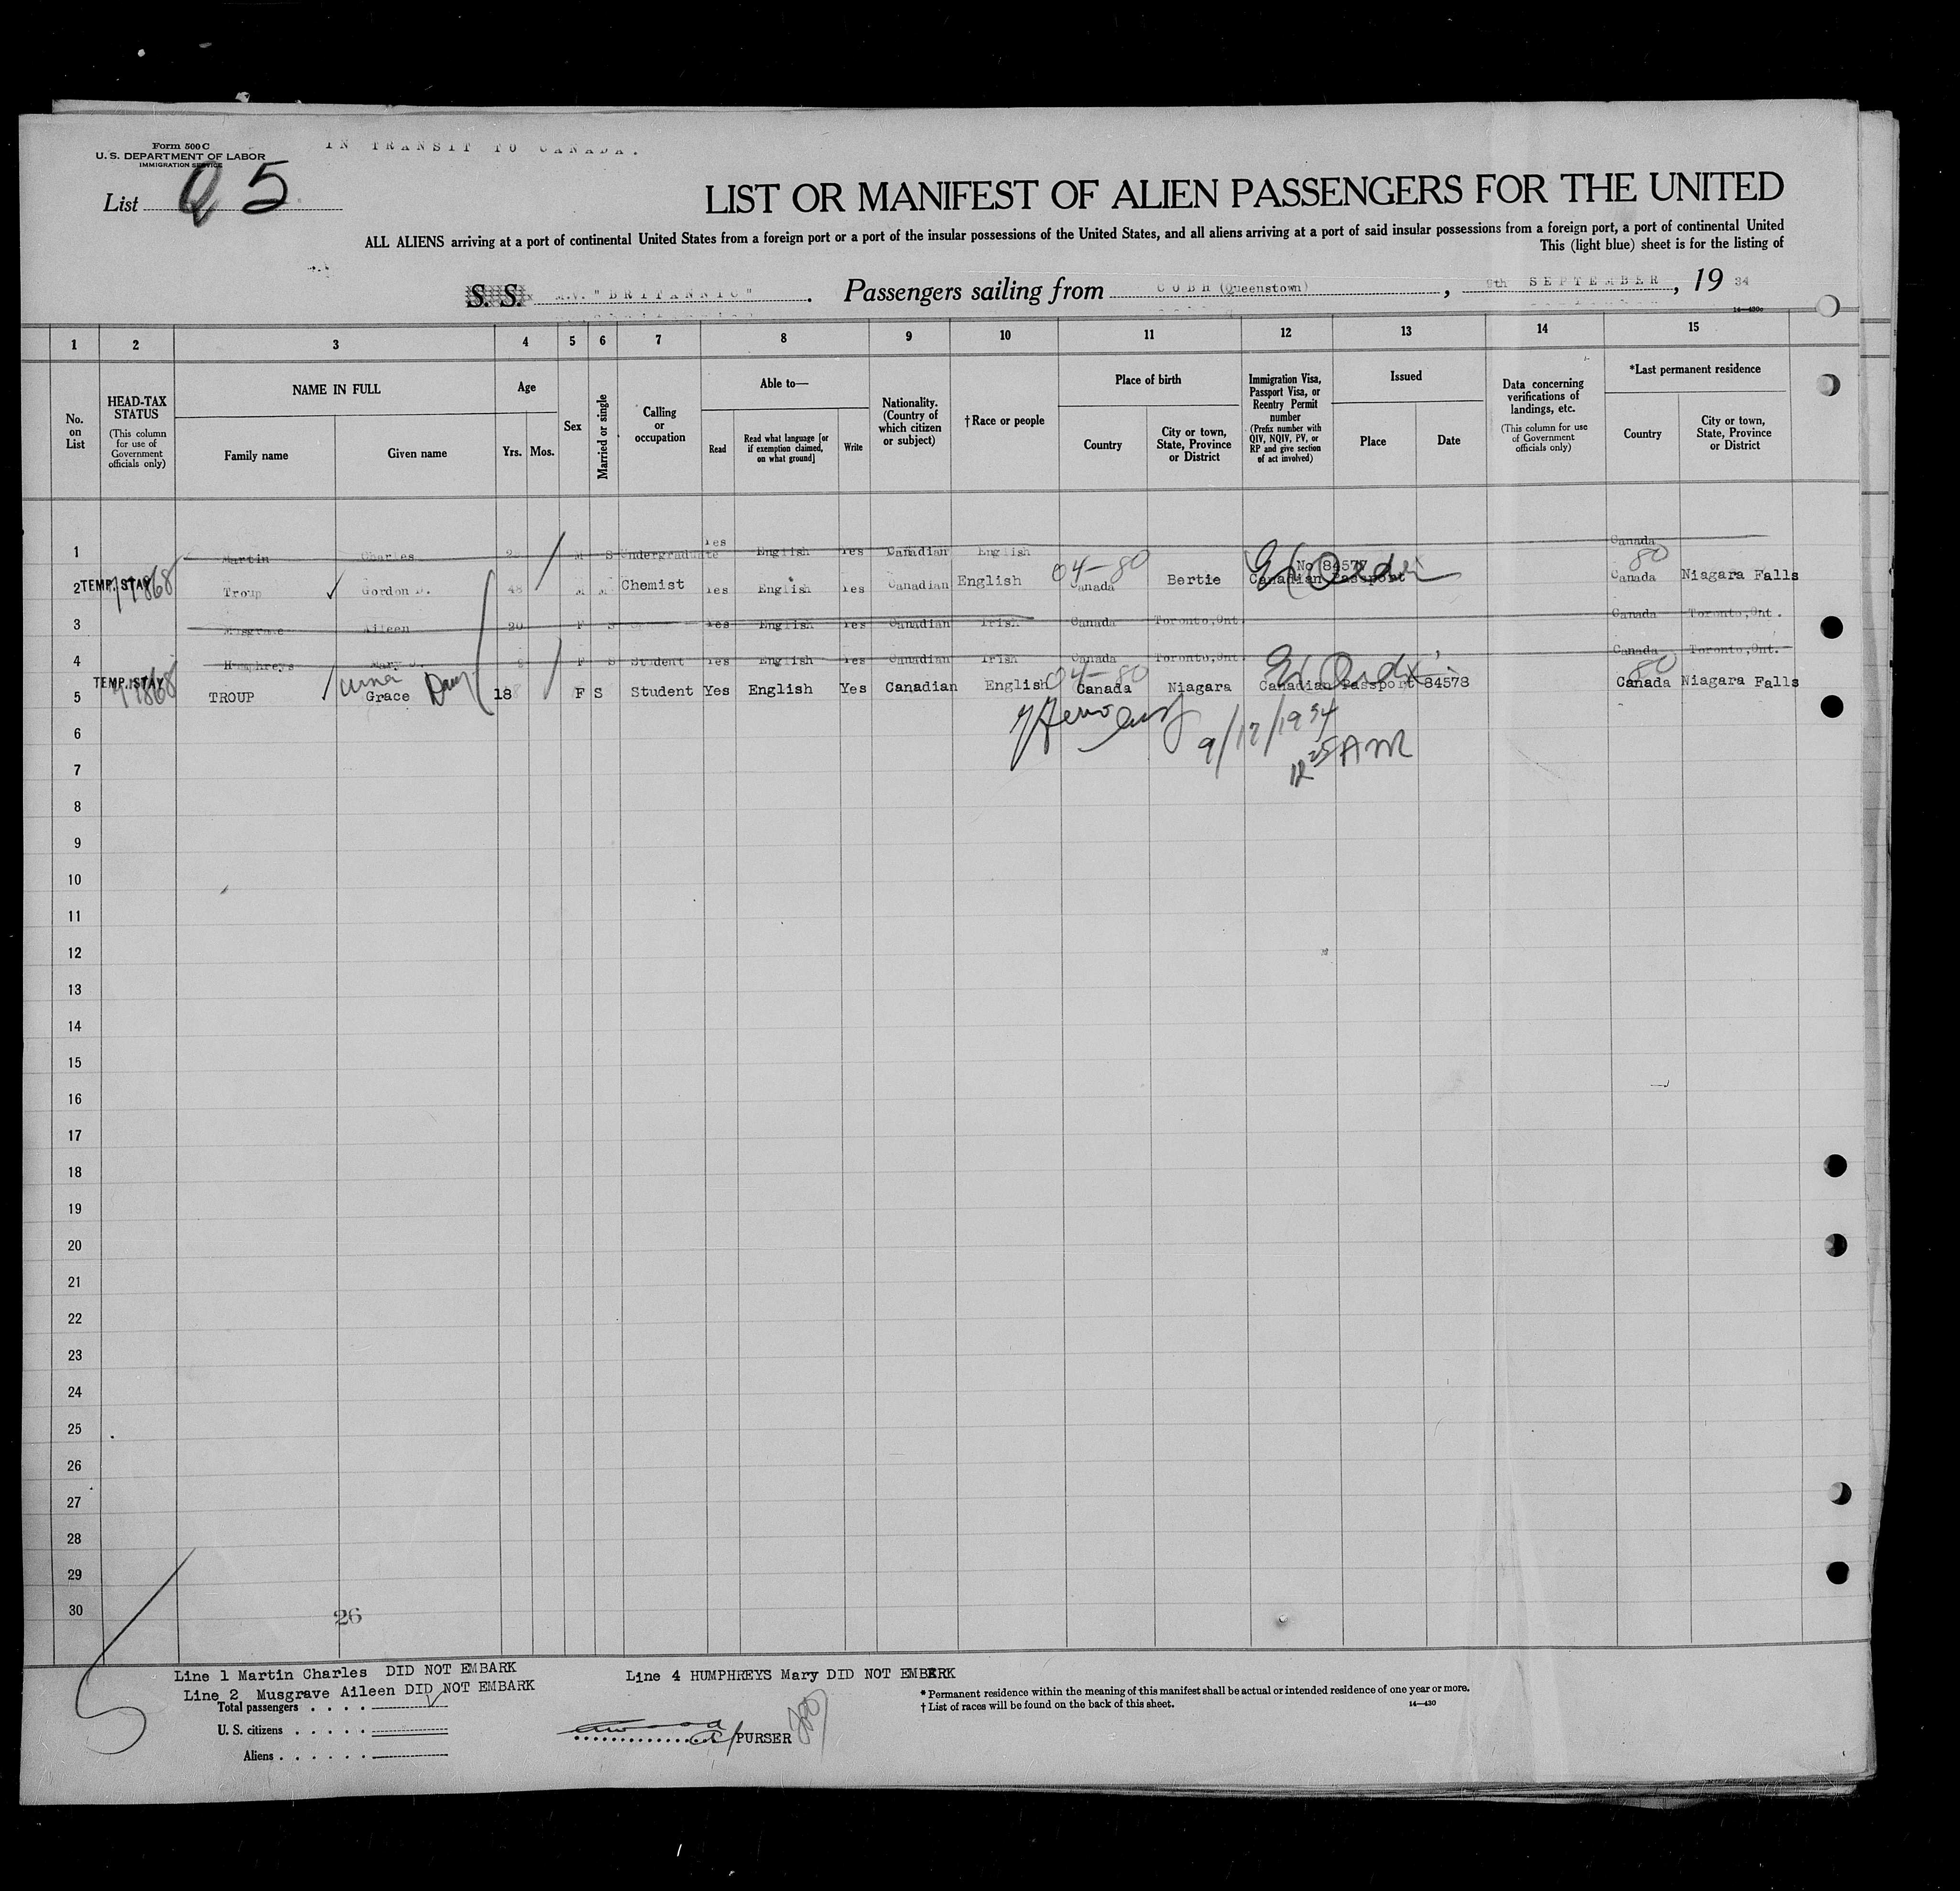 Form 500 C
U. S. DEPARTMENT OF LABOR
IMMIGRATION SERVICE
IN TRANSIT TO CANADA.
List Q 5
LIST OR MANIFEST OF ALIEN PASSENGERS FOR THE UNITED
ALL ALIENS arriving at a port of continental United States from a foreign port or a port of the insular possessions of the United States, and all aliens arriving at a port of said insular possessions from a foreign port, a port of continental United
This (light blue) sheet is for the listing of
S. S. M.V. "BRITANNIC". Passengers sailing from COBH (Queenstown), 9th SEPTEMBER, 19 34
14—430c
1 2 3 4 5 6 7 8 9 10 11 12 13 14 15
No. on List
HEAD-TAX STATUS (This column for use of Government officials only)
NAME IN FULL
Family name
Given name
Age
Yrs. Mos.
Sex
Married or single
Calling or occupation
Able to—
Read
Read what language [or if exemption claimed, on what ground]
Write
Nationality. (Country of which citizen or subject)
†Race or people
Place of birth
Country
City or town, State, Province or District
Immigration Visa, Passport Visa, or Reentry Permit number (Prefix number with QIV, NQIV, PV, or RP and give section of act involved)
Issued
Place
Date
Data concerning verifications of landings, etc. (This column for use of Government officials only)
*Last permanent residence
Country
City or town, State, Province or District
1 Martin Charles M S Undergraduate Yes English Yes Canadian English Canada
2 TEMP. STAY Troup Gordon D. 48 M M Chemist Yes English Yes Canadian English 04-80 Canada Bertie No 84577 Canadian Passport 80 Canada Niagara Falls
3 Musgrave Aileen 20 F S Yes English Yes Canadian Irish Canada Toronto,Ont. Canada Toronto,Ont.
4 Humphreys Mary J. 9 F S Student Yes English Yes Canadian Irish Canada Toronto,Ont. Canada Toronto,Ont.
5 TEMP. STAY TROUP Grace 18 F S Student Yes English Yes Canadian English 04-80 Canada Niagara Canadian Passport 84578 80 Canada Niagara Falls
9/17/1934
12 25 AM
6
7
8
9
10
11
12
13
14
15
16
17
18
19
20
21
22
23
24
25
26
27
28
29
30
26
Line 1 Martin Charles DID NOT EMBARK
Line 2 Musgrave Aileen DID NOT EMBARK
Line 4 HUMPHREYS Mary DID NOT EMBARK
Total passengers
U. S. citizens
Aliens
PURSER
* Permanent residence within the meaning of this manifest shall be actual or intended residence of one year or more.
† List of races will be found on the back of this sheet.
14—430